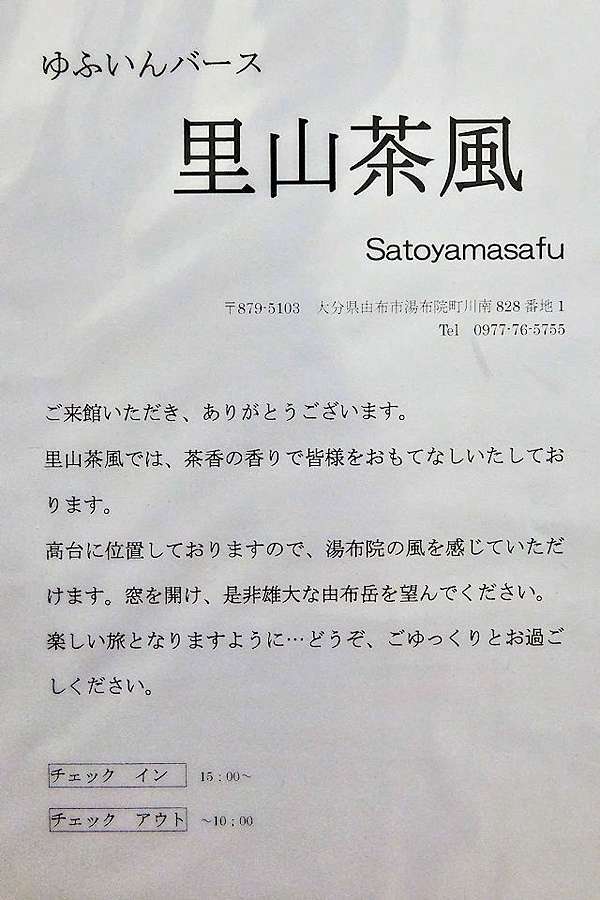 ゆふいんバース
里山茶風
Satoyamasafu
〒879-5103　大分県由布市湯布院町川南 828 番地 1
Tel　0977-76-5755
ご来館いただき、ありがとうございます。
里山茶風では、茶香の香りで皆様をおもてなしいたしてお
ります。
高台に位置しておりますので、湯布院の風を感じていただ
けます。窓を開け、是非雄大な由布岳を望んでください。
楽しい旅となりますように…どうぞ、ごゆっくりとお過ご
しください。
チェック　イン　15：00～
チェック　アウト　～10：00